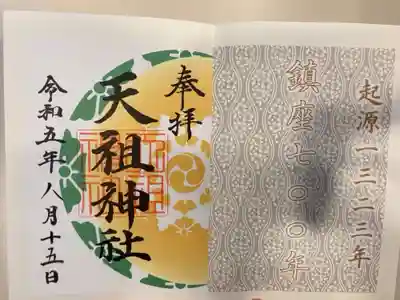 起源一三二三年
鎮座七〇〇年
奉拝
天祖神社
令和五年八月十五日